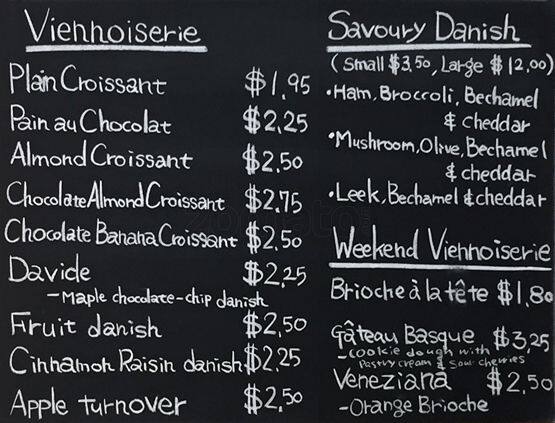 Viennoiserie
Plain Croissant $1.95
Pain au Chocolat $2.25
Almond Croissant $2.50
Chocolate Almond Croissant $2.75
Chocolate Banana Croissant $2.50
Davide $2.25
-Maple chocolate-chip danish
Fruit danish $2.50
Cinnamon Raisin danish $2.25
Apple turnover $2.50
Savoury Danish
(Small $3.50, Large $12.00)
•Ham, Broccoli, Bechamel
& cheddar
•Mushroom, Olive, Bechamel
& cheddar
•Leek, Bechamel & cheddar
Weekend Viennoiserie
Brioche à la tête $1.80
Gâteau Basque $3.25
-cookie dough with
pastry cream & sour cherries
Veneziana $2.50
-Orange Brioche